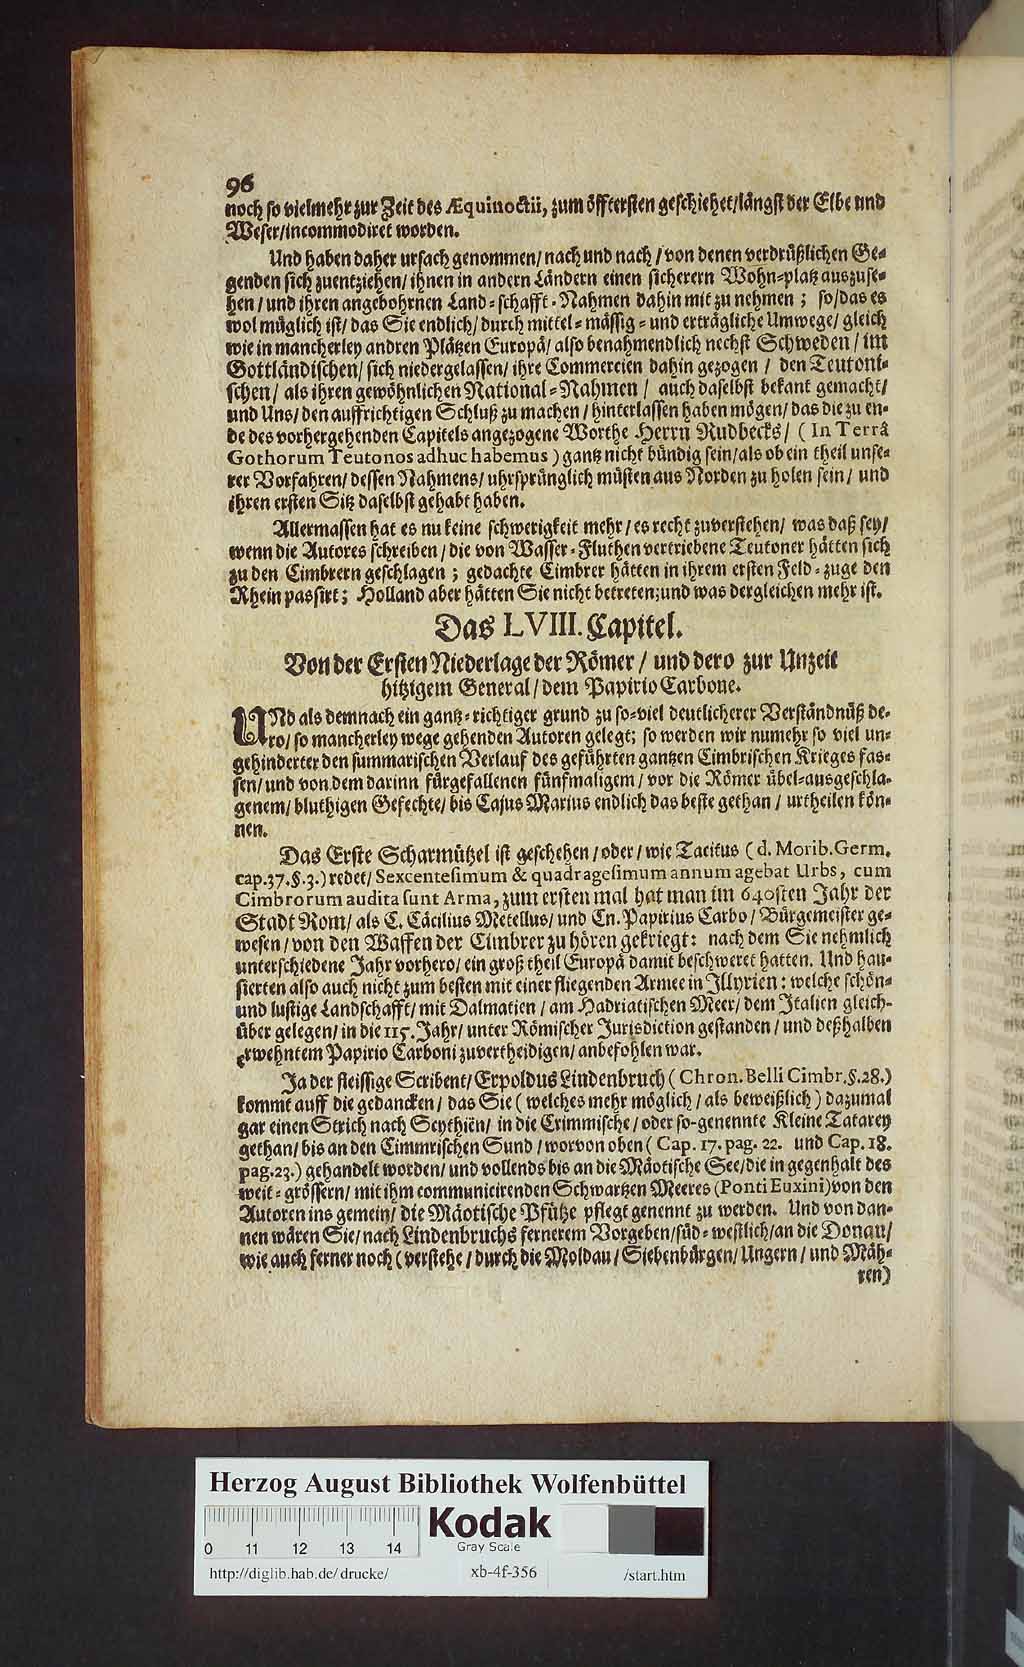 96
noch so vielmehr zur Zeit des Æquinoctii, zum öfftersten geschiehet/längst der Elbe und
Weser/incommodiret worden.
Und haben daher ursach genommen/ nach und nach/ von denen verdrüßlichen Ge-
genden sich zuentziehen/ ihnen in andern Ländern einen sicherern Wohn-platz auszuse-
hen/ und ihren angebohrnen Land-schafft-Nahmen dahin mit zu nehmen; so/das es
wol müglich ist/ das Sie endlich/ durch mittel-mässig-und erträgliche Umwege/ gleich
wie in mancherley andren Plätzen Europä/ also benahmendlich nechst Schweden/ im
Gottländischen/ sich niedergelassen/ ihre Commercien dahin gezogen/ den Teutoni-
schen/ als ihren gewöhnlichen National-Nahmen/ auch daselbst bekant gemacht/
und Uns/ den auffrichtigen Schluß zu machen/ hinterlassen haben mögen/ das die zu en-
de des vorhergehenden Capitels angezogene Worthe Herrn Rudbecks/ (In Terrâ
Gothorum Teutonos adhuc habemus) gantz nicht bündig sein/als ob ein theil unse-
rer Vorfahren/ dessen Nahmens/ uhrsprünglich müsten aus Norden zu holen sein/ und
ihren ersten Sitz daselbst gehabt haben.
Allermassen hat es nu keine schwerigkeit mehr/ es recht zuverstehen/ was daß sey/
wenn die Autores schreiben/ die von Wasser-Fluthen vertriebene Teutoner hätten sich
zu den Cimbrern geschlagen; gedachte Cimbrer hätten in ihrem ersten Feld-zuge den
Rhein passirt; Holland aber hätten Sie nicht betreten;und was dergleichen mehr ist.
Das LVIII. Capitel.
Von der Ersten Niederlage der Römer/ und dero zur Unzeit
hitzigem General/ dem Papirio Carbone.
UNd als demnach ein gantz-richtiger grund zu so-viel deutlicherer Verständnüß de-
ro/ so mancherley wege gehenden Autoren gelegt; so werden wir numehr so viel un-
gehinderter den summarischen Verlauf des geführten gantzen Cimbrischen Krieges fas-
sen/ und von dem darinn fürgefallenen fünfmaligem/ vor die Römer übel-ausgeschla-
genem/ bluthigen Gefechte/ bis Cajus Marius endlich das beste gethan/ urtheilen kön-
nen.
Das Erste Scharmützel ist geschehen/ oder/ wie Tacitus (d. Morib. Germ.
cap.37.§.3.) redet/ Sexcentesimum & quadragesimum annum agebat Urbs, cum
Cimbrorum audita sunt Arma, zum ersten mal hat man im 640sten Jahr der
Stadt Rom/ als C. Cäcilius Metellus/ und Cn. Papirius Carbo/ Bürgemeister ge-
wesen/ von den Waffen der Cimbrer zu hören gekriegt: nach dem Sie nehmlich
unterschiedene Jahr vorhero/ ein groß theil Europä damit beschweret hatten. Und hau-
sierten also auch nicht zum besten mit einer fliegenden Armee in Jllyrien: welche schön-
und lustige Landschafft/ mit Dalmatien/ am Hadriatischen Meer/ dem Jtalien gleich-
über gelegen/ in die 115. Jahr/ unter Römischer Jurisdiction gestanden/ und deßhalben
erwehntem Papirio Carboni zuvertheidigen/ anbefohlen war.
Ja der fleissige Scribent/ Erpoldus Lindenbruch (Chron. Belli Cimbr.§.28.)
kommt auff die gedancken/ das Sie (welches mehr möglich/ als beweißlich) dazumal
gar einen Strich nach Scythiën/ in die Crimmische/ oder so-genennte Kleine Tatarey
gethan/ bis an den Cimmrischen Sund/ worvon oben (Cap. 17. pag. 22. und Cap. 18.
pag.23.) gehandelt worden/ und vollends bis an die Mäotische See/die in gegenhalt des
weit-grössern/ mit ihm communicirenden Schwartzen Meeres (Ponti Euxini)von den
Autoren ins gemein/ die Mäotische Pfütze pflegt genennt zu werden. Und von dan-
nen wären Sie/ nach Lindenbruchs fernerem Vorgeben/ süd-westlich/an die Donau/
wie auch ferner noch (verstehe/ durch die Moldau/ Siebenbürgen/ Ungern/ und Mäh-
ren)
Herzog August Bibliothek Wolfenbüttel
Kodak
Gray Scale
0 11 12 13 14
http://diglib.hab.de/drucke/ xb-4f-356 /start.htm